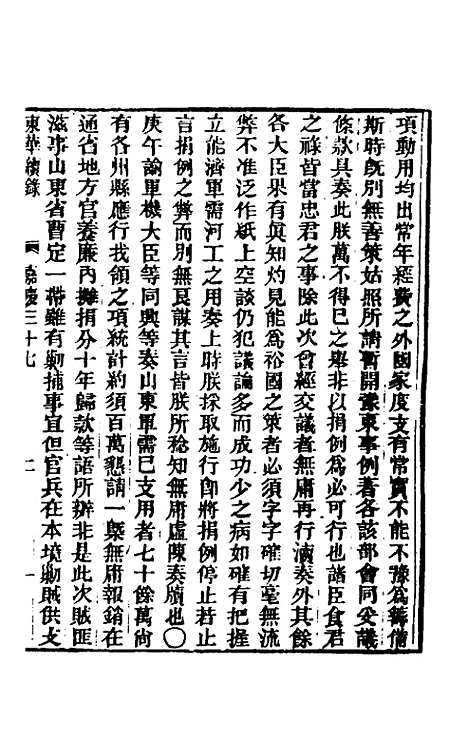 項動用均出常年經費之外國家度支有常實不能不豫爲籌備
斯時旣別無善策姑照所請暫開豫東事例著各該部會同妥議
條款具奏此朕萬不得已之舉非以捐例爲必可行也諸臣食君
之祿皆當忠君之事除此次曾經交議者無庸再行瀆奏外其餘
各大臣果有眞知灼見能爲裕國之策者必須字字確切毫無流
弊不准泛作紙上空談仍犯議論多而成功少之病如確有把握
立能濟軍需河工之用奏上時朕採取施行卽將捐例停止若止
言捐例之弊而別無良謀其言皆朕所稔知無庸虛陳奏牘也〇
庚午諭軍機大臣等同興等奏山東軍需已支用者七十餘萬尙
有各州縣應行找領之項統計約須百萬懇請一槩無庸報銷在
通省地方官養廉內攤捐分十年歸款等語所辦非是此次賊匪
滋事山東省曹定一帶雖有勦捕事宜但官兵在本境勦賊供支
東華續錄 嘉慶三十七 二